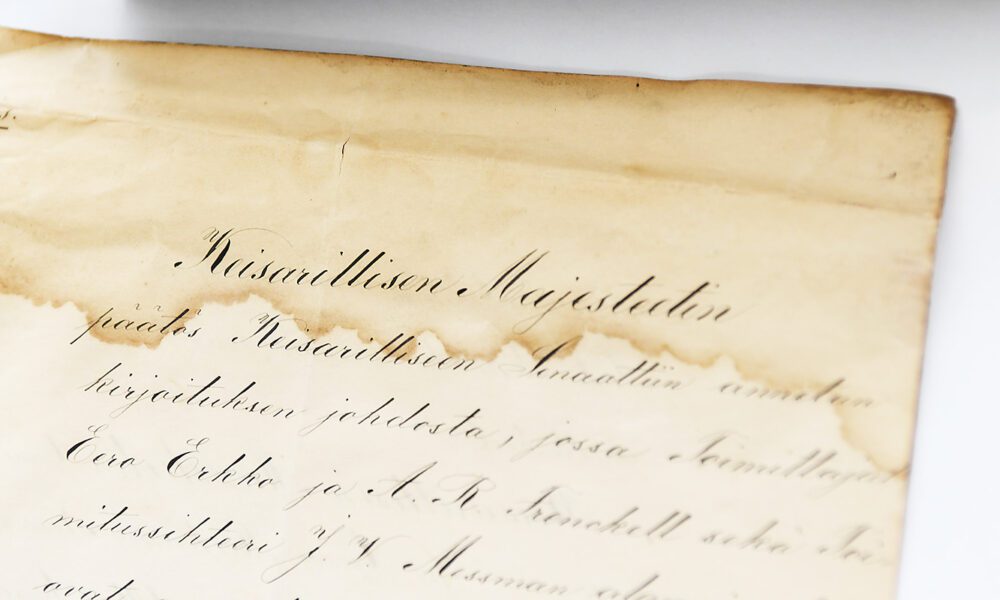 s.
Keisarillisen Majesteetin
päätös Keisarilliseen Senaattiin annetun
kirjoituksen johdosta, jossa Toimittajat
Eero Erkko ja A. R. Frenckell sekä Toi-
mitussihteeri J. V. Messman
ovat